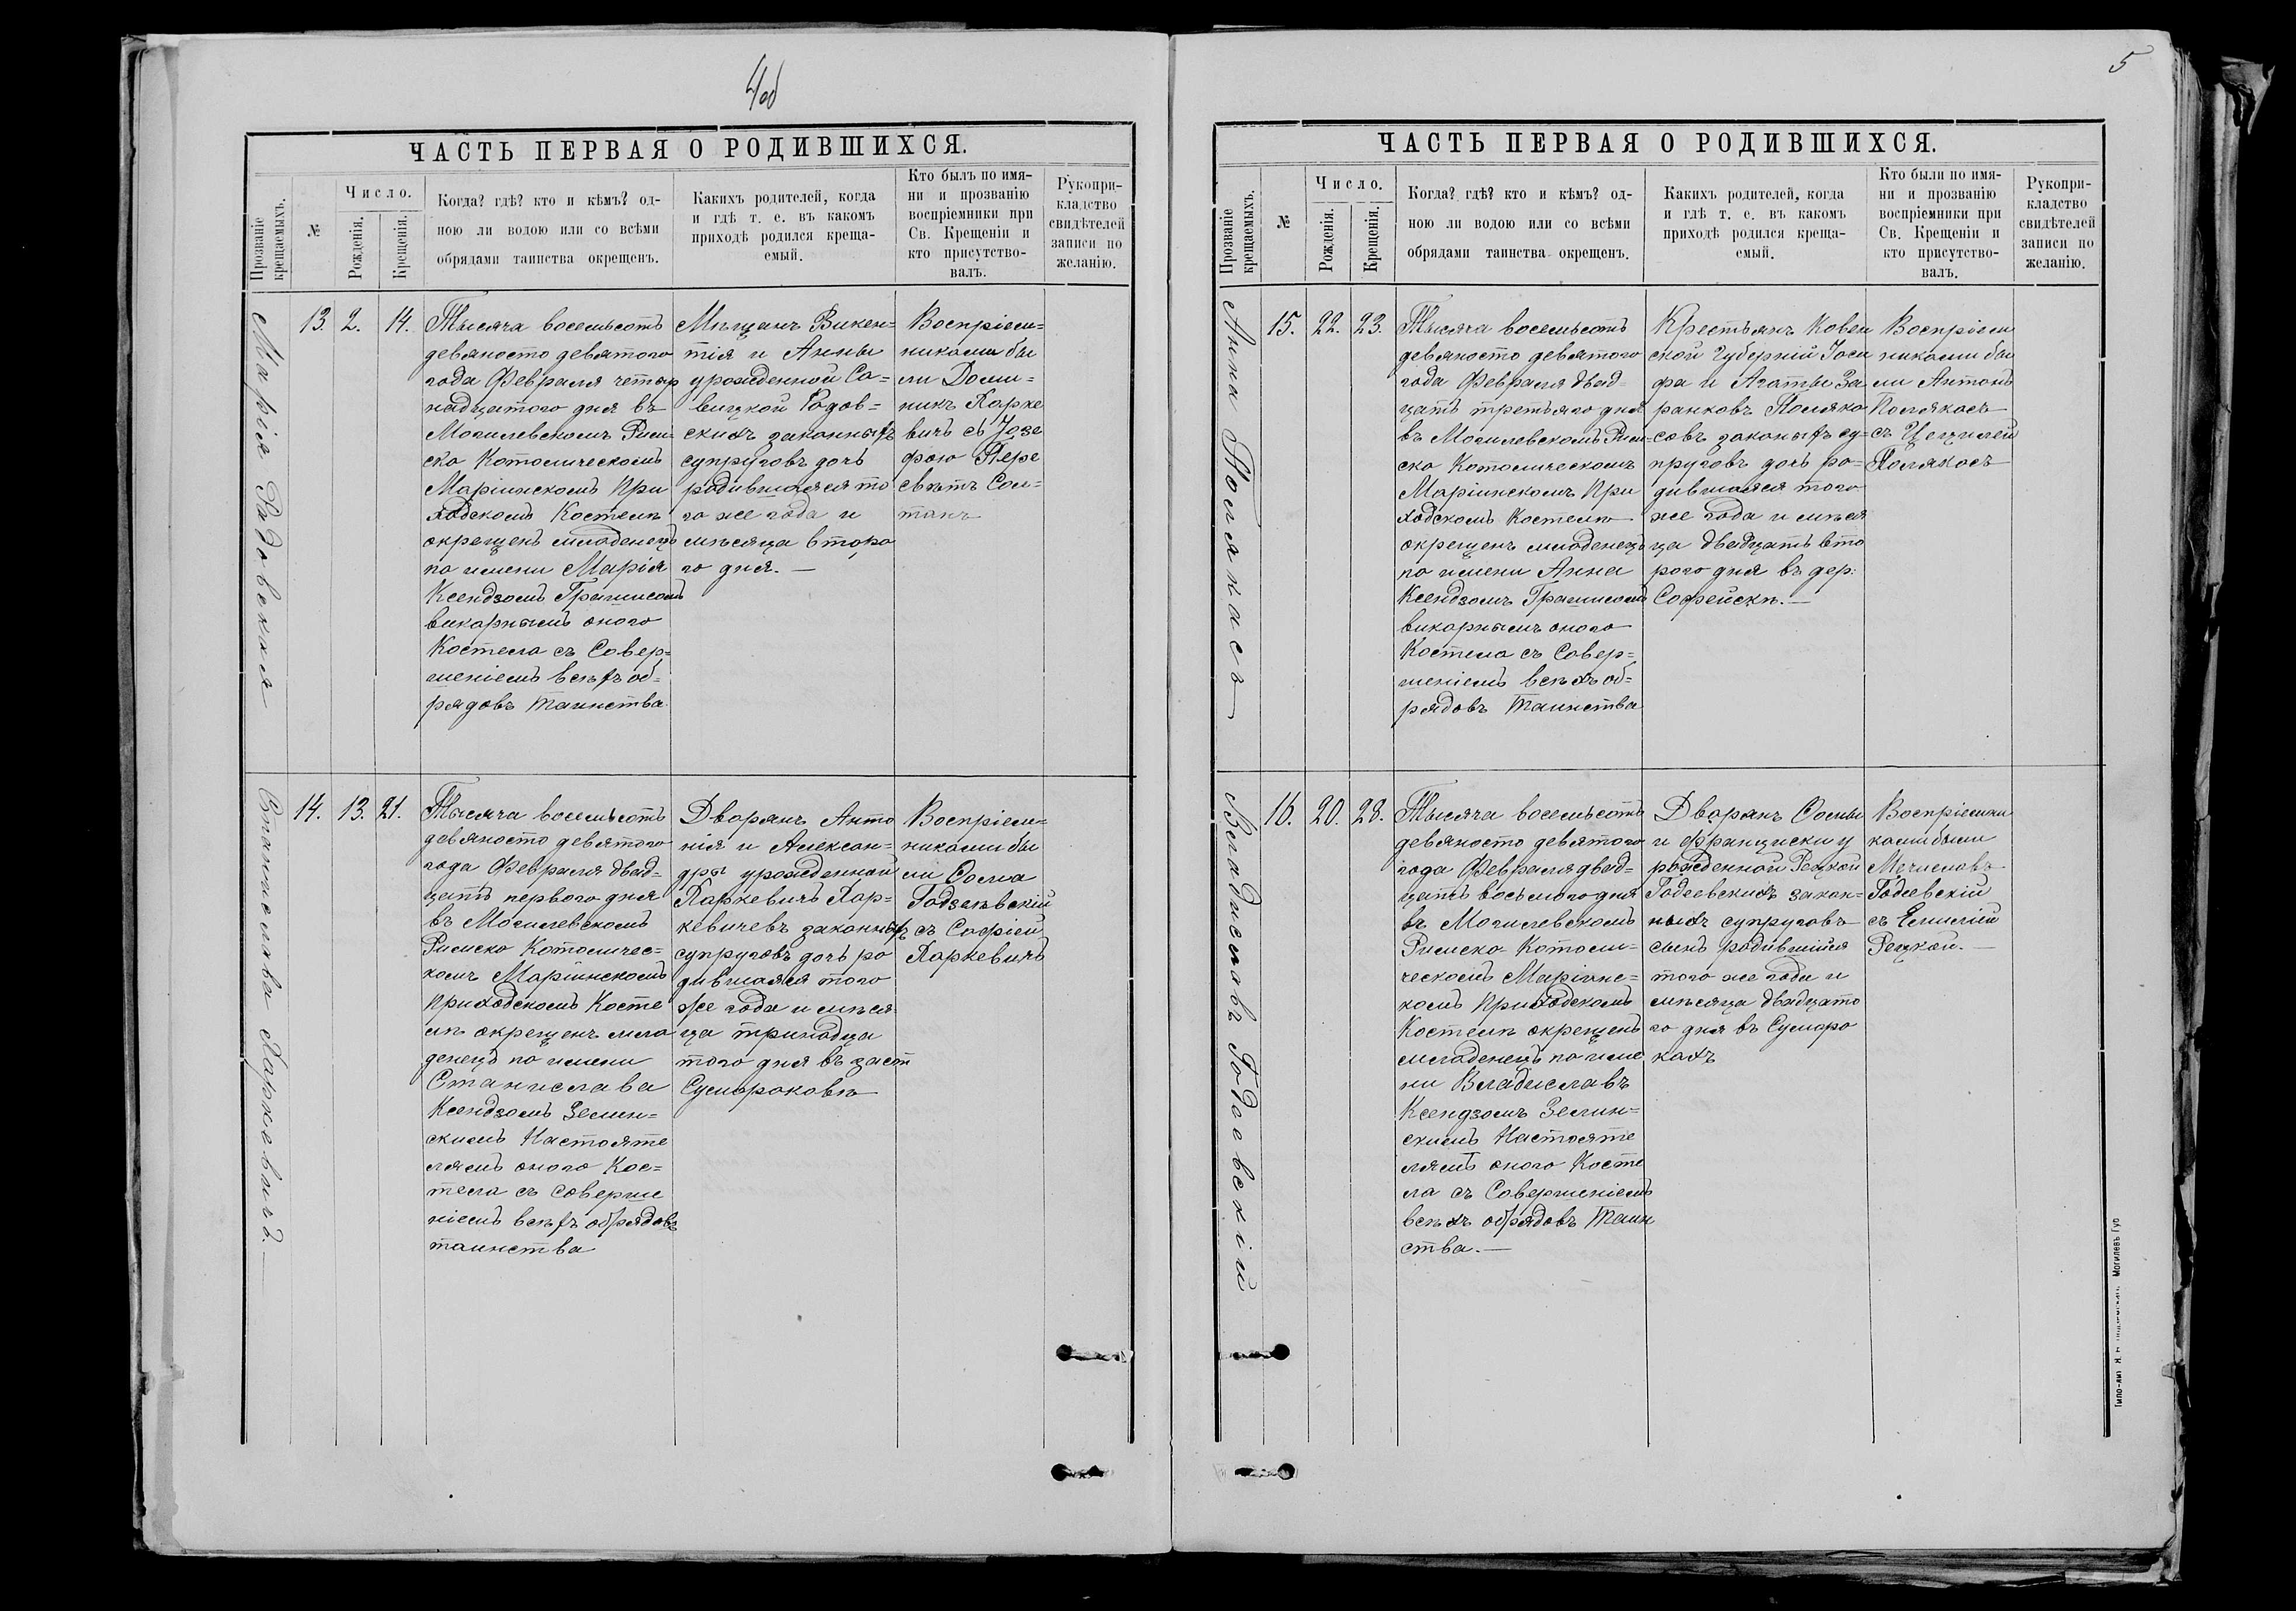 4об
ЧАСТЬ ПЕРВАЯ О РОДИВШИХСЯ.
Прозваніе
крещаемыхъ.
№
Число.
Рожденія.
Крещенія.
Когда? гдѣ? кто и кѣмъ? од-
ною ли водою или со всѣми
обрядами таинства окрещенъ.
Какихъ родителей, когда
и гдѣ т. е. въ какомъ
приходѣ родился креща-
емый.
Кто былъ по имя-
ни и прозванію
воспріемники при
Св. Крещеніи и
кто присутство-
валъ.
Рукопри-
кладство
свидѣтелей
записи по
желанію.
Марія Радовская
13. 2. 14.
Тысяча восемьсотъ
девяносто девятого
года Февраля четыр
надцатого дня въ
Могилевскомъ Рим
ско Католическомъ
Маріинскомъ При
ходскомъ Костелѣ
окрещенъ младенецъ
по имени Марія
Ксендзомъ
викарнымъ оного
Костела съ Совер=
шеніемъ всѣхъ об=
рядовъ Таинства
Мѣщанъ Викен=
тія и Анны
урожденной Са=
вицкой Радов=
скихъ законныхъ
супруговъ дочь
родившаяся то
го же года и
мѣсяца второ
го дня.—
Воспріем=
никами бы
ли Доми=
никъ Ларке
вичъ съ Юзе
фою Пере
свѣтъ Сол=
танъ
Станислава Ларкевичъ.—
14. 13. 21.
Тысяча восемьсотъ
девяносто девятого
года Февраля двад=
цать первого дня
въ Могилевскомъ
Римско Католичес=
комъ Маріинскомъ
Приходскомъ Косте
лѣ окрещенъ мла
денецъ по имени
Станислава
Ксендзомъ Зелин=
скимъ Настояте
лемъ оного Кос=
тела съ соверше
ніемъ всѣхъ обрядовъ
таинства
Дворянъ Анто
нія и Алексан=
дры урожденной
Ларкевичъ Лар=
кевичевъ законныхъ
супруговъ дочь ро
дившаяся того
же года и мѣся
ца тринадца
того дня въ заст
Сумароковѣ
Воспріем=
никами бы
ли Ѳома
Годзевскій
съ Софіей
Ларкевичъ
5
ЧАСТЬ ПЕРВАЯ О РОДИВШИХСЯ.
Прозваніе
крещаемыхъ.
№
Число.
Рожденія.
Крещенія.
Когда? гдѣ? кто и кѣмъ? од-
ною ли водою или со всѣми
обрядами таинства окрещенъ.
Какихъ родителей, когда
и гдѣ т. е. въ какомъ
приходѣ родился креща-
емый.
Кто были по имя-
ни и прозванію
воспріемники при
Св. Крещеніи и
кто присутство-
валъ.
Рукопри-
кладство
свидѣтелей
записи по
желанію.
Анна Полякасъ—
15. 22. 23.
Тысяча восемьсотъ
девяносто девятого
года Февраля двад=
цать третьяго дня
въ Могилевскомъ Рим=
ско Католическомъ
Маріинскомъ При
ходскомъ Костелѣ
окрещенъ младенецъ
по имени Анна
Ксендзомъ
викарнымъ оного
Костела съ Совер=
шеніемъ всѣхъ об=
рядовъ Таинства
Крестьянъ Ковен
ской Губерніи Іоси
фа и Агаты За
ранковъ Поляка
совъ законыхъ су=
пруговъ дочь ро=
дившаяся того
же года и мѣся
ца двадцать вто
рого дня въ дер.
Софейскѣ.—
Воспріем
никами бы
ли Антонъ
Полякасъ
съ Цецилей
Полякасъ
Владиславъ Годеевскій
16. 20. 28.
Тысяча восемьсотъ
девяносто девятого
года Февраля двад=
цать восьмого дня
въ Могилевскомъ
Римско-Католи=
ческомъ Маріинс=
комъ Приходскомъ
Костелѣ окрещенъ
младенецъ по име
ни Владиславъ
Ксендзомъ Зелин=
скимъ Настояте
лямъ оного Косте
ла съ Совершеніемъ
всѣхъ обрядовъ Таин
ства.—
Дворянъ Ѳомы
и Францишки у
рожденной Рецкой
Годеевскихъ закон=
ныхъ супруговъ
сынъ родившійся
того же года и
мѣсяца двадцато
го дня въ Сумаро
кахъ
Воспріемни
ками были
Мечиславъ
Годеевскій
съ Емиліей
Рецкой.—
Могилевъ Губ